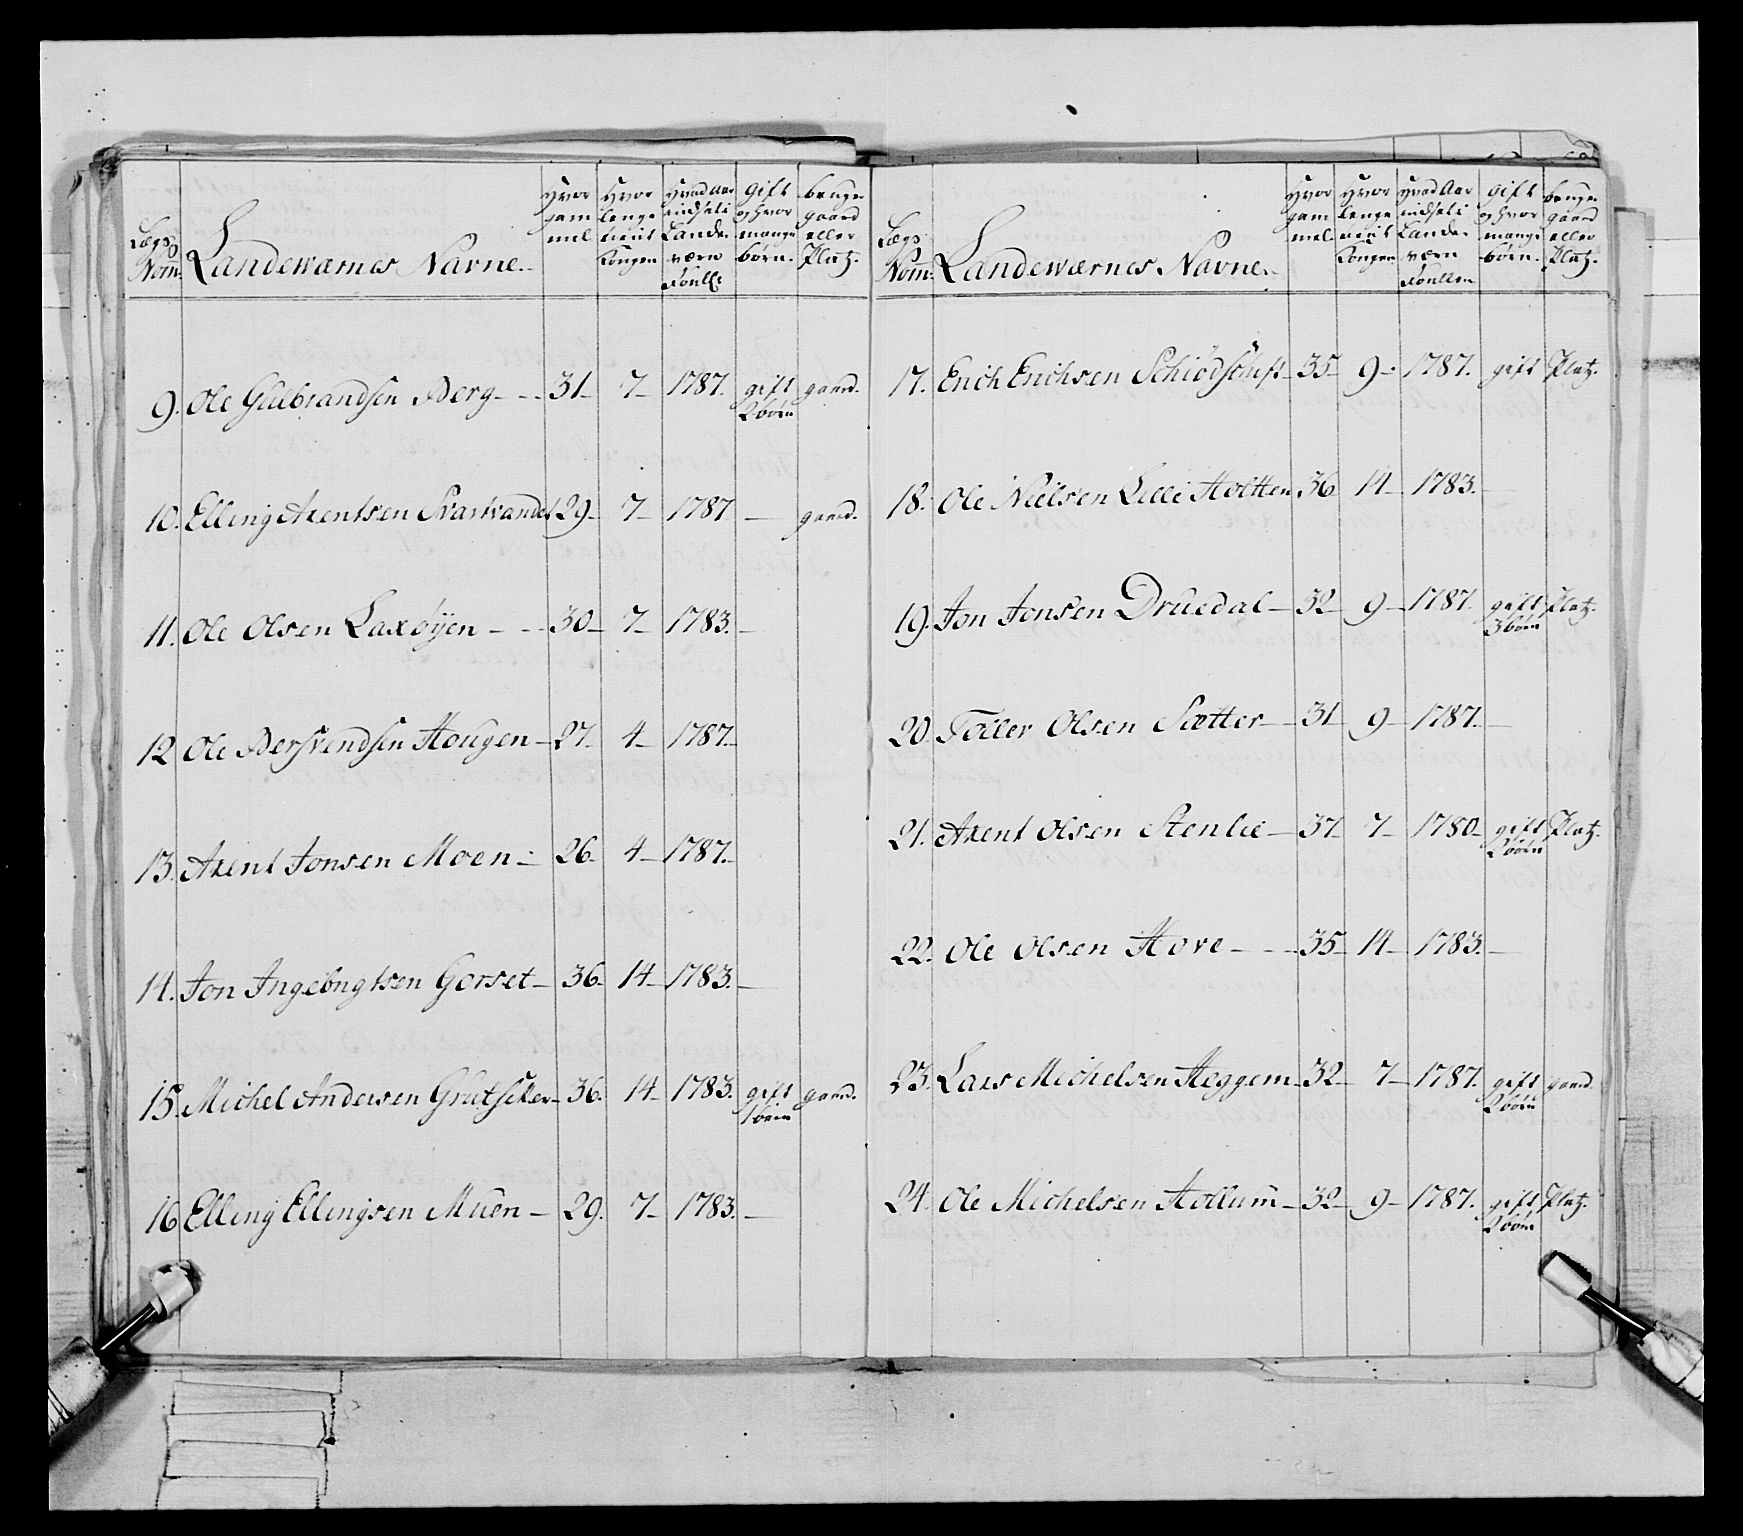 Lægs Nom: Landeværnes Navne.. Hvor gam mel Hvor lenge tient Kongen Hvad Aar indsat i Lande- værn Roull: gift og hvor mange børn. bruger gaard eller Platz.
9. Ole Gulbrandsen Berg - - - 31 - 7 - 1787. gift gaard.
2 børn
10. Elling Arentsen Svartvandet 29 - 7 - 1787 — gaard.
11. Ole Olsen Laxøÿen - - - 30 - 7 - 1783. —
12 Ole Bersvendsen Hougen - 27. 4 - 1787. -
13. Arent Jonsen Moen - 26. 4 - 1787. -
14. Jon Ingebrigtsen Gorset - 36. 14 - 1783. —
15. Michel Andersen Grutseter - 36. 14 - 1783. gift gaard.
1 barn
16 Elling Ellingsen Muen - 29. 7 - 1783. —
Lægs Nom: Landeværnes Navne.. Hvor gam mel Hvor lenge tient Kongen Hvad Aar indsat i Lande- værn Roullen gift og hvor mange børn. bruger gaard eller Platz.
17. Erich Erichsen - 35 - 9 - 1787. gift Platz.
18. Ole Nielsen Lille Holtten 36 14 - 1783. —
19. Jon Jonsen Druedal - 32 - 9 - 1787. gift Platz.
3 børn
20. Toller Olsen Sætter - 31 - 9 - 1787. —
21. Arent Olsen Stenlie - 37 - 7 - 1780 - gift Platz.
2 børn
22. Ole Olsen Hove - - - 35 - 14 - 1783. —
23. Lars Michelsen Heggem - 32 - 7 - 1787. gift gaard.
2 børn
24. Ole Michelsen Hollum - 32 - 9 - 1787. gift Platz.
2 børn